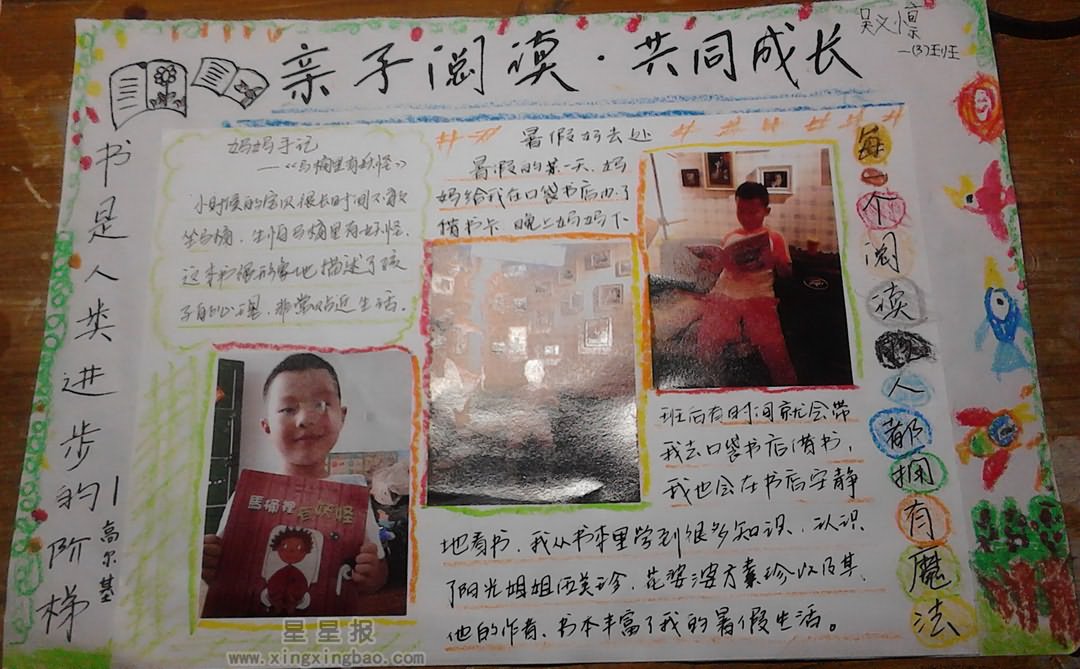 亲子阅读·共同成长
吴义懔
一(3)班
书是人类进步的阶梯
—高尔基
妈妈手记
——《马桶里有妖怪》
小时候的宝贝很长时间不敢
坐马桶,生怕马桶里有妖怪,
这本书很形象地描述了孩
子的心理,非常贴近生活。
暑假好去处
暑假的某一天,妈
妈给我在口袋书店办了
借书卡,晚上妈妈下
班后有时间就会带
我去口袋书店借书,
我也会在书店安静
地看书,我从书本里学到很多知识、认识
了阳光姐姐伍美珍、花婆婆方素珍以及其
他的作者,书本丰富了我的暑假生活。
每一个阅读的人都拥有魔法
馬桶裡有妖怪
星星报
www.xingxingbao.com